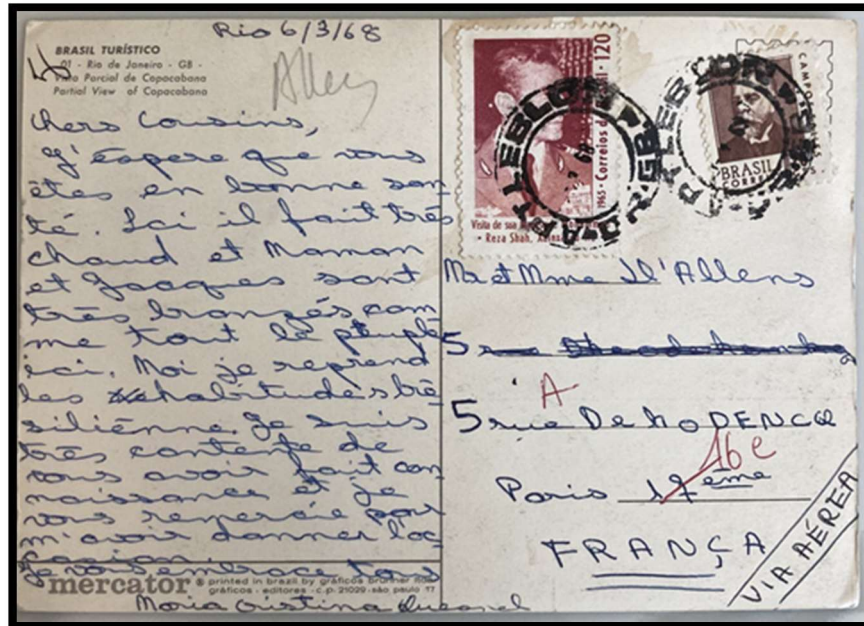 Rio 6/3/68
BRASIL TURÍSTICO
01 - Rio de Janeiro - GB -
Vista Parcial de Copacabana
Partial View of Copacabana
Chers Cousins,
J'éspere que vous
êtes en bonne san
té. Ici il fait très
chaud et Maman
et Jacques sont
très bronzés com
me tout le peuple
ici. Moi je reprend
les habitudes bré
siliénne. Je suis
très contente de
vous avoir fait con
naissance et je
vous remercie par
m'avoir donner l'oc
casion.
Je vous embrace tous
Maria Cristina
mercator ® printed in brazil by gráficos brunner ltda
gráficos - editores - c.p. 21029 - são paulo 17
120
1965 - Correios do Brasil
Visita de sua
Reza Shah,
LEBLON
GB
LEBLON
BRASIL
CORREIO
CAMPOS
Mr et Mme D'Allens
5 rue
A
5 rue De
16e
Paris 17ème
FRANÇA
VIA AÉREA